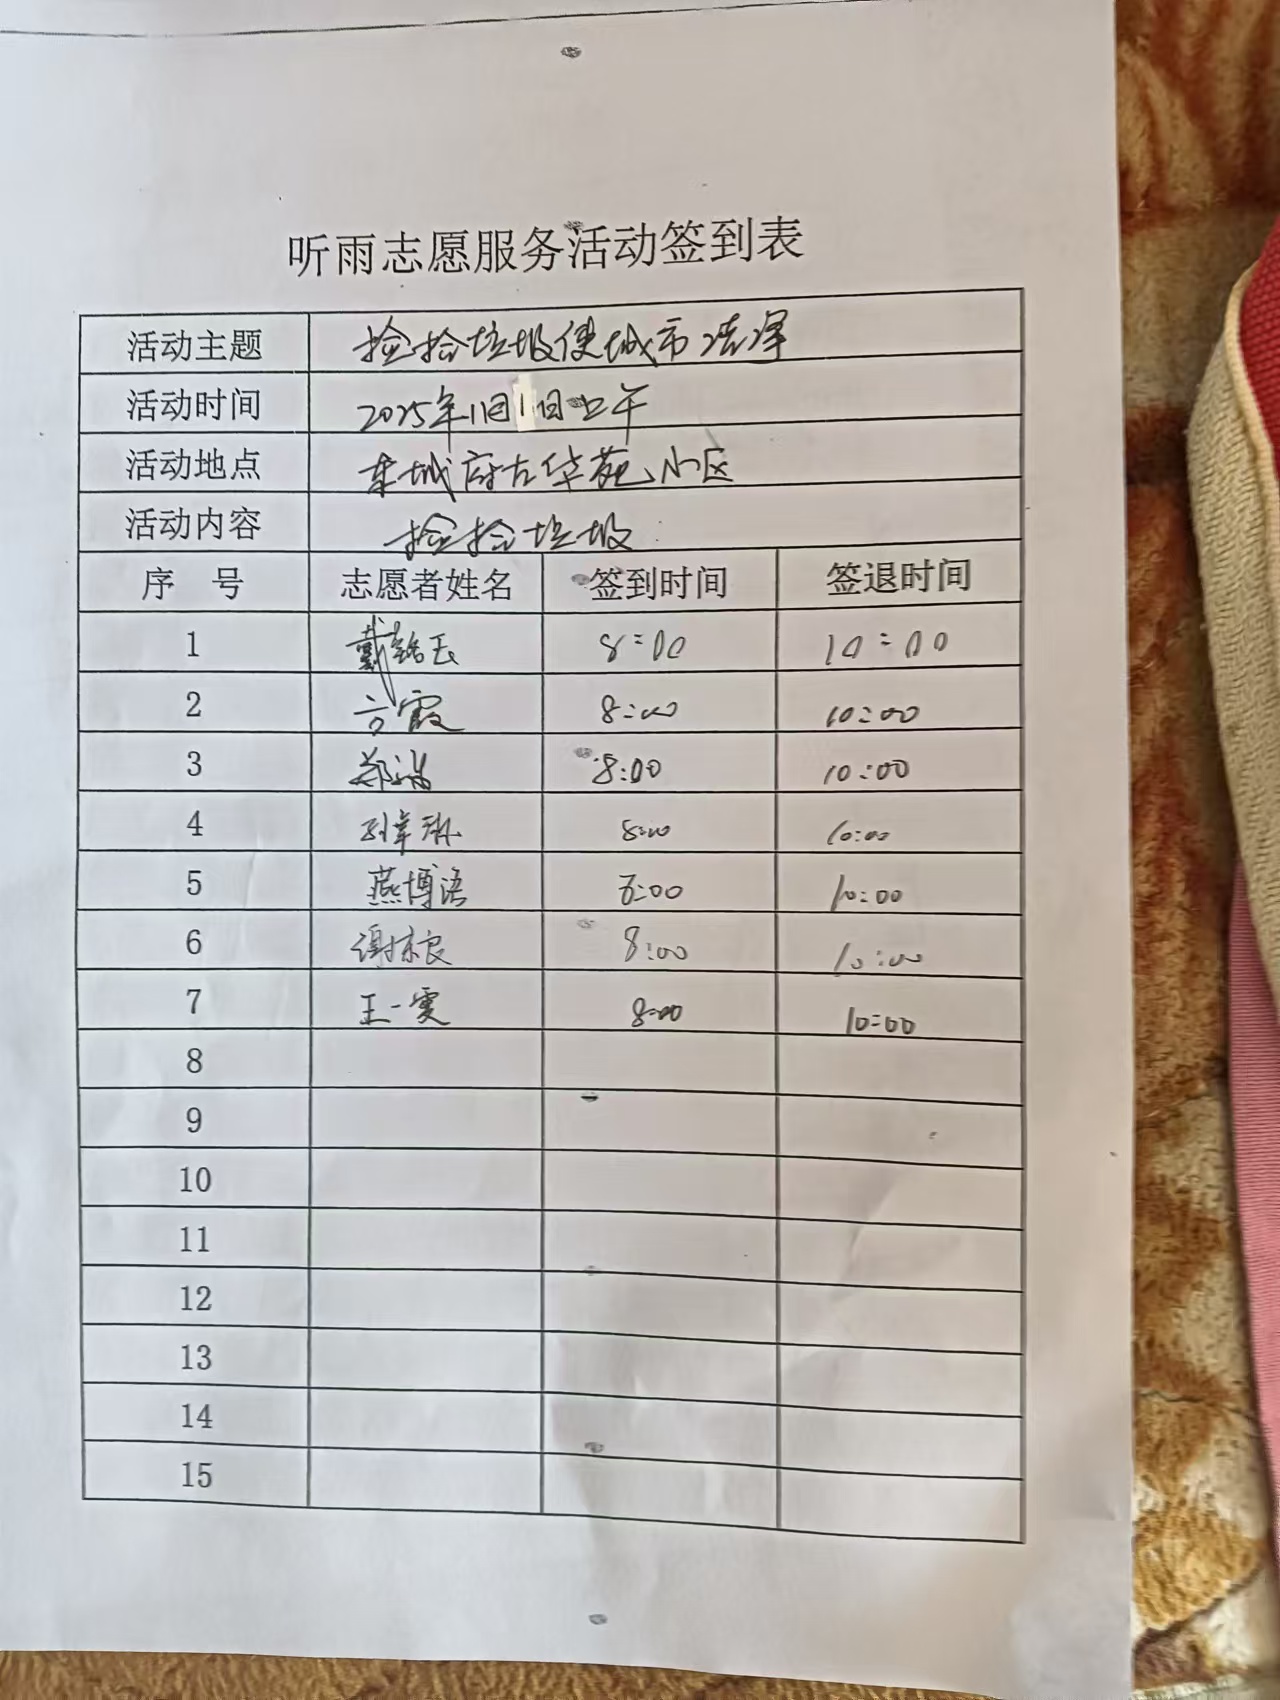 听雨志愿服务活动签到表
活动主题 捡拾垃圾使城市洁净
活动时间 2025年11月1日上午
活动地点 东城府古华苑小区
活动内容 捡拾垃圾
序 号 志愿者姓名 签到时间 签退时间
1 戴铭玉 8:00 10:00
2 方霞 8:00 10:00
3 郑浩 8:00 10:00
4 8:00 10:00
5 燕博涵 8:00 10:00
6 谢家良 8:00 10:00
7 王一雯 8:00 10:00
8
9
10
11
12
13
14
15